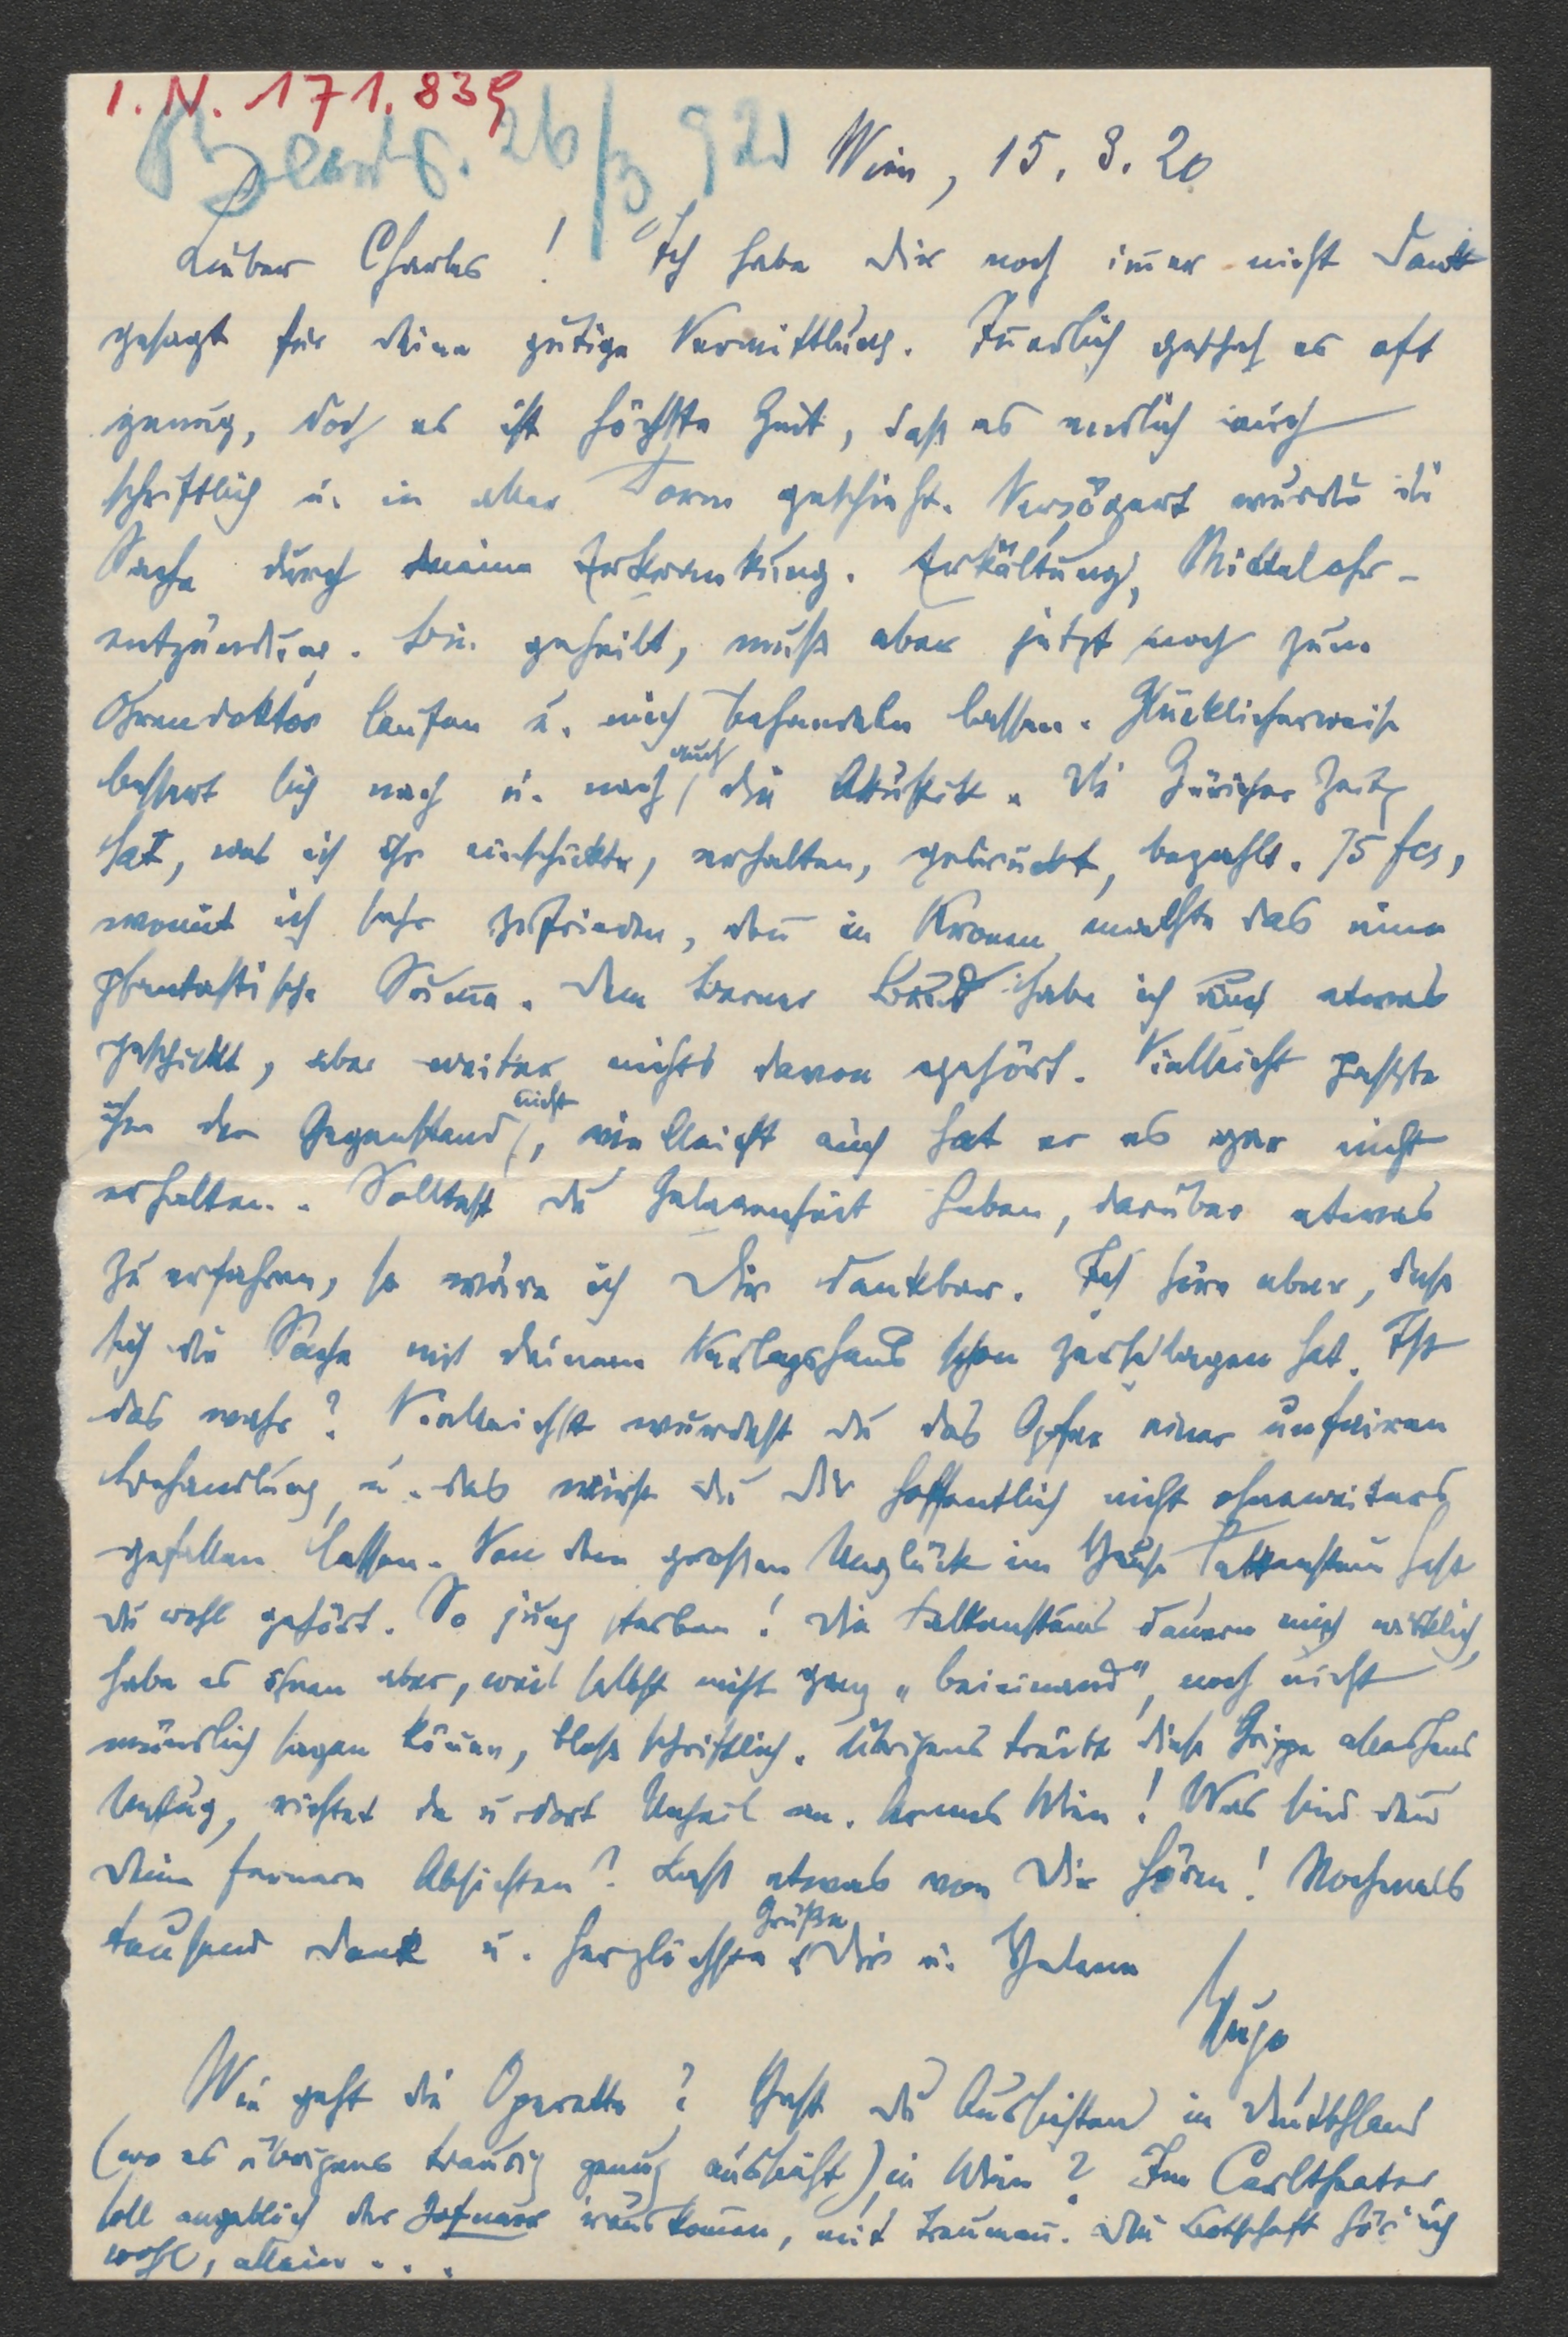 I. N. 171.839
Beantw. 26/3 920
Wien, 15. 3. 20
Lieber Charles! Ich habe Dir noch im̅er nicht Dank
gesagt für Deine gütige Vermittlung. In̅erlich geschah es oft
genug, doch es ist höchste Zeit, daß es endlich auch
schriftlich u. in aller Form geschieht. Verzögert wurde die
Sache durch meine Erkrankung. Erkältung, Mittelohr-
entzündung. Bin geheilt, muß aber jetzt noch zum
Ohrendoktor laufen u. mich behandeln lassen. Glücklicherweise
bessert sich nach u. nach auch die Akustik. Die Züricher Zeitg
hat, was ich ihr einschickte, erhalten, gedruckt, bezahlt. 75 fcs,
womit ich sehr zufrieden, den̅ in Kronen machte das eine
phantastische Sum̅e. Dem Berner Bund habe ich auch etwas
geschickt, aber weiter nichts davon gehört. Vielleicht passte
ihm der Gegenstand nicht, vielleicht auch hat er es gar nicht
erhalten. Solltest Du Gelegenheit haben, darüber etwas
zu erfahren, so wäre ich Dir dankbar. Ich höre aber, daß
sich die Sache mit Deinem Verlagshaus schon zerschlagen hat. Ist
das wahr? Vielleicht wurdest Du das Opfer einer unfairen
Behandlung u. das wirst Du Dir hoffentlich nicht ohneweiters
gefallen lassen. Von dem großen Unglück im Hause Falkenstein hast
Du wohl gehört. So jung sterben! Die Falkensteins dauern mich wirklich,
habe es ihnen aber, weil selbst nicht ganz „beieinand", noch nicht
mündlich sagen kön̅en, bloß schriftlich. Übrigens treibt diese Grippe
Unfug, richtet da u dort Unheil an. Armes Wien! Was sind den̅
Deine ferneren Absichten? Laß etwas von Dir hören! Nochmals
tausend Dank u. herzlichste Grüße Dir u. Helene
Hugo
Wie geht die Operette? Hast Du Aussichten in Deutschland
(wo es übrigens traurig genug aussieht), in Wien? Im Carltheater
soll angeblich der Hofnarr kom̅en, mit Treuman̅. Die Botschaft hör' ich
wohl, allein . . .